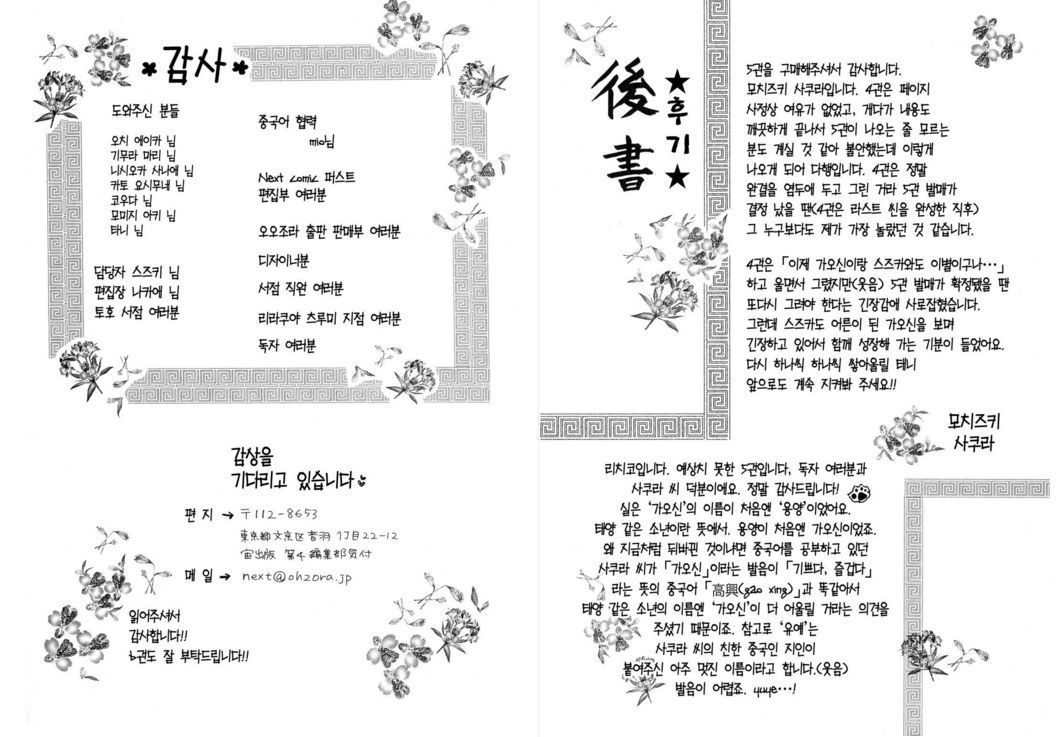 *감사*
도와주신 분들
오치 에이카 님
기무라 마리 님
니시오카 사나에 님
카토 요시무네 님
코우다 님
모미지 아키 님
타니 님
담당자 스즈키 님
편집장 나카에 님
토호 서점 여러분
중국어 협력
mio님
Next comic 퍼스트
편집부 여러분
오오조라 출판 판매부 여러분
디자이너분
서점 직원 여러분
리라쿠야 츠루미 지점 여러분
독자 여러분
감상을
기다리고 있습니다
편지 → 〒112-8653
東京都文京区音羽 1丁目22-12
宙出版 第4編集部気付
메일 → next@ohzora.jp
읽어주셔서
감사합니다!!
6권도 잘 부탁드립니다!!
後書
★후기★
5권을 구매해주셔서 감사합니다.
모치즈키 사쿠라입니다. 4권은 페이지
사정상 여유가 없었고, 게다가 내용도
깨끗하게 끝나서 5권이 나오는 줄 모르는
분도 계실 것 같아 불안했는데 이렇게
나오게 되어 다행입니다. 4권은 정말
완결을 염두에 두고 그린 거라 5권 발매가
결정 났을 땐(4권은 라스트 씬을 완성한 직후)
그 누구보다도 제가 가장 놀랐던 것 같습니다.
4권은 「이제 가오신이랑 스즈카와도 이별이구나…」
하고 울면서 그렸지만(웃음) 5권 발매가 확정됐을 땐
또다시 그려야 한다는 긴장감에 사로잡혔습니다.
그런데 스즈카도 어른이 된 가오신을 보며
긴장하고 있어서 함께 성장해 가는 기분이 들었어요.
다시 하나씩 하나씩 쌓아올릴 테니
앞으로도 계속 지켜봐 주세요!!
모치즈키
사쿠라
리치코입니다. 예상치 못한 5권입니다, 독자 여러분과
사쿠라 씨 덕분이에요. 정말 감사드립니다!
실은 '가오신'의 이름이 처음엔 '용양'이었어요.
태양 같은 소년이란 뜻에서. 용양이 처음엔 가오신이었죠.
왜 지금처럼 뒤바뀐 것이냐면 중국어를 공부하고 있던
사쿠라 씨가 「가오신」이라는 발음이 「기쁘다, 즐겁다」
라는 뜻의 중국어 「高興(gao xing)」과 똑같아서
태양 같은 소년의 이름엔 '가오신'이 더 어울릴 거라는 의견을
주셨기 때문이죠. 참고로 '유예'는
사쿠라 씨의 친한 중국인 지인이
붙여주신 아주 멋진 이름이라고 합니다.(웃음)
발음이 어렵죠. yuye…!